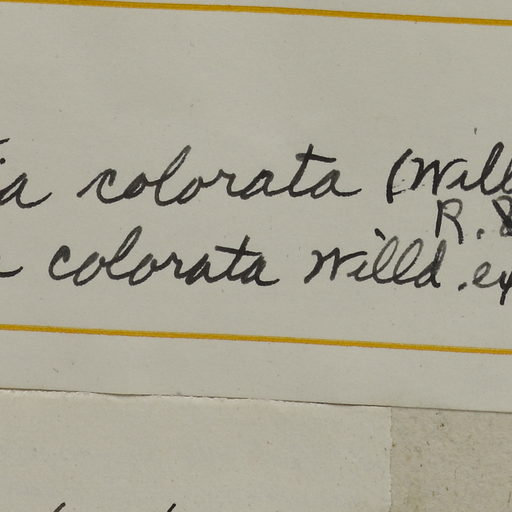 ia colorata (Will
R. &
colorata Willd. ex